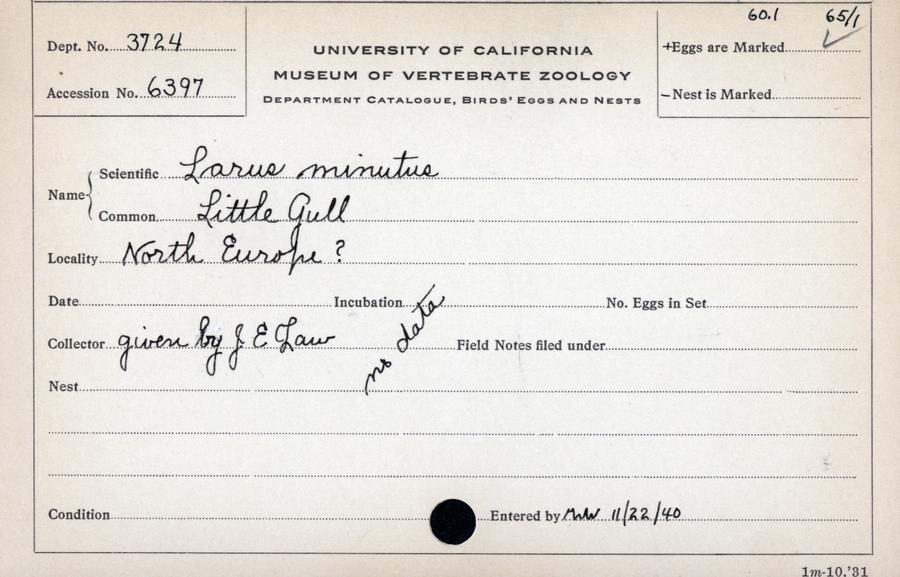 60.1 65/1
Dept. No. 3724
UNIVERSITY OF CALIFORNIA
+Eggs are Marked
MUSEUM OF VERTEBRATE ZOOLOGY
Accession No. 6397
DEPARTMENT CATALOGUE, BIRDS' EGGS AND NESTS
-Nest is Marked
Name
Scientific Larus minutus
Common Little Gull
Locality North Europe ?
Date Incubation No. Eggs in Set
no data
Collector given by J E Law Field Notes filed under
Nest
Condition Entered by 11/22/40
1m-10,'31